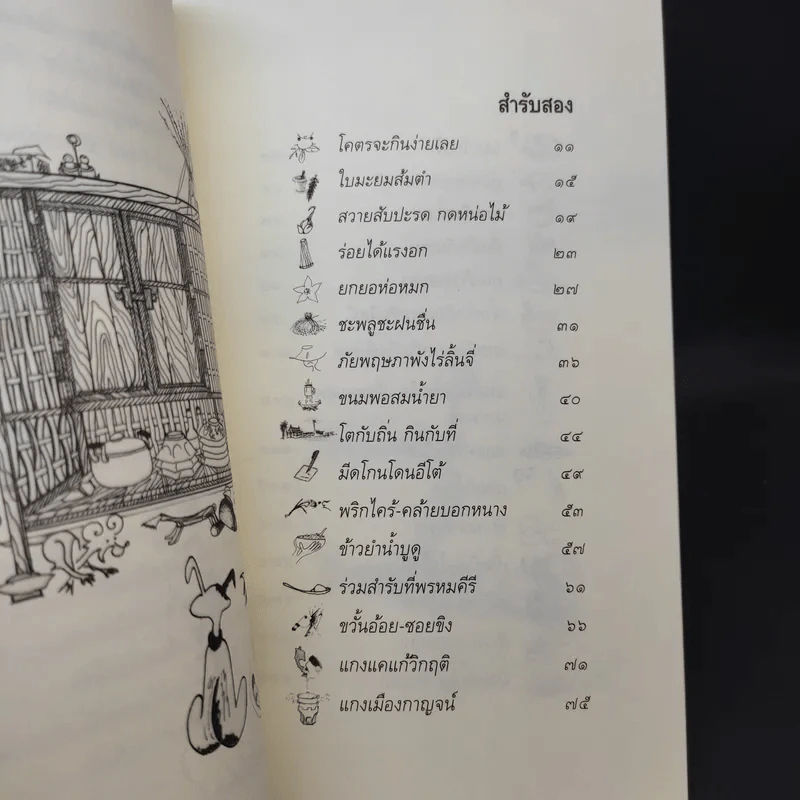 สำรับสอง
โคตรจะกินง่ายเลย ๑๑
ใบมะยมส้มตำ ๑๕
สวายสับปะรด กดหน่อไม้ ๑๙
ร่อยได้แรงอก ๒๓
ยกยอห่อหมก ๒๗
ชะพลูชะฝนชื่น ๓๑
ภัยพฤษภาพังไร่ลิ้นจี่ ๓๖
ขนมพอสมน้ำยา ๔๐
โตกับถิ่น กินกับที่ ๔๔
มีดโกนโดนอีโต้ ๔๙
พริกไคร้-คล้ายบอกหนาง ๕๓
ข้าวยำน้ำบูดู ๕๗
ร่วมสำรับที่พรหมคีรี ๖๑
ขวั้นอ้อย-ซอยขิง ๖๖
แกงแคแก้วิกฤติ ๗๑
แกงเมืองกาญจน์ ๗๕